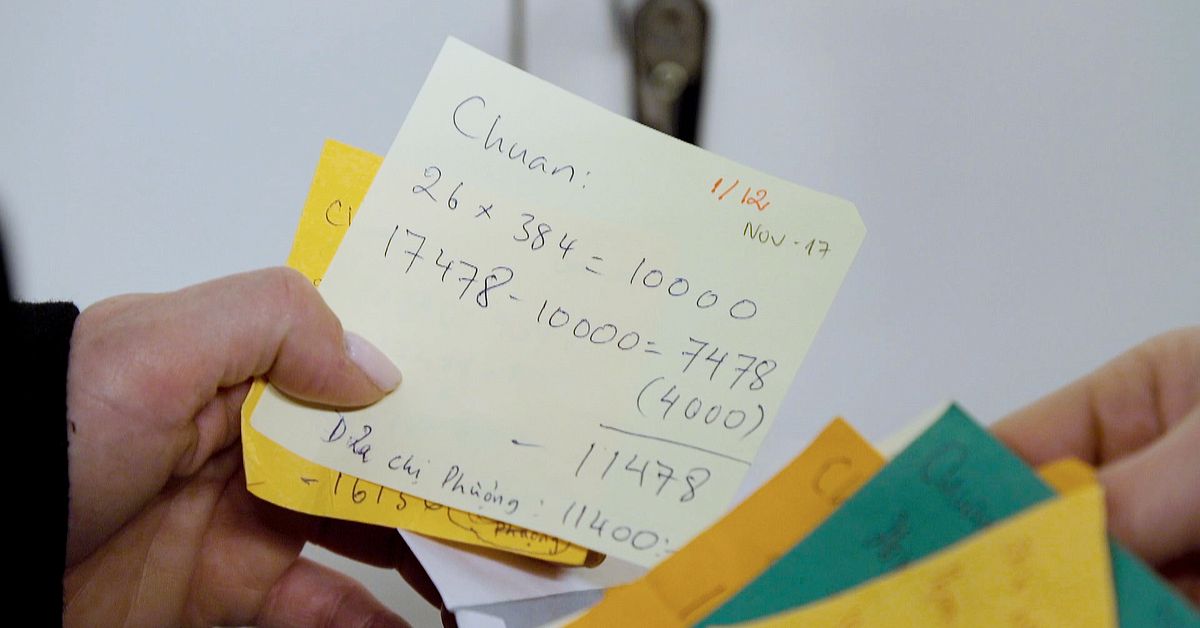 Chuan:
1/12
NOV-17
26 x 384 = 10000
17478 - 10000 = 7478
(4000)
- 11478
Đưa chị Phượng: 11400:-
- 1615
Phượng